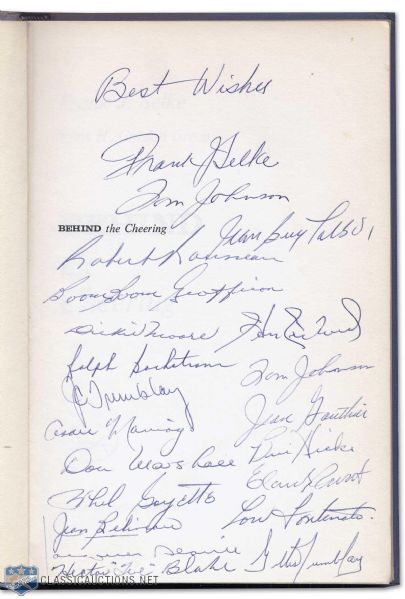 Best Wishes
Frank J Selke
Tom Johnson
BEHIND the Cheering
Jean Guy Talbot
Robert Rousseau
Boom Boom Geoffrion
Dickie Moore
Ralph Backstrom
Tom Johnson
JC Tremblay
Jean Gauthier
Cesare Maniago
Don Marshall Bill Hicke
Claude Provost
Phil Goyette
Lou Fontinato
Jean Béliveau
Hector "Toe" Blake Gilles Tremblay
CLASSICAUCTIONS.NET